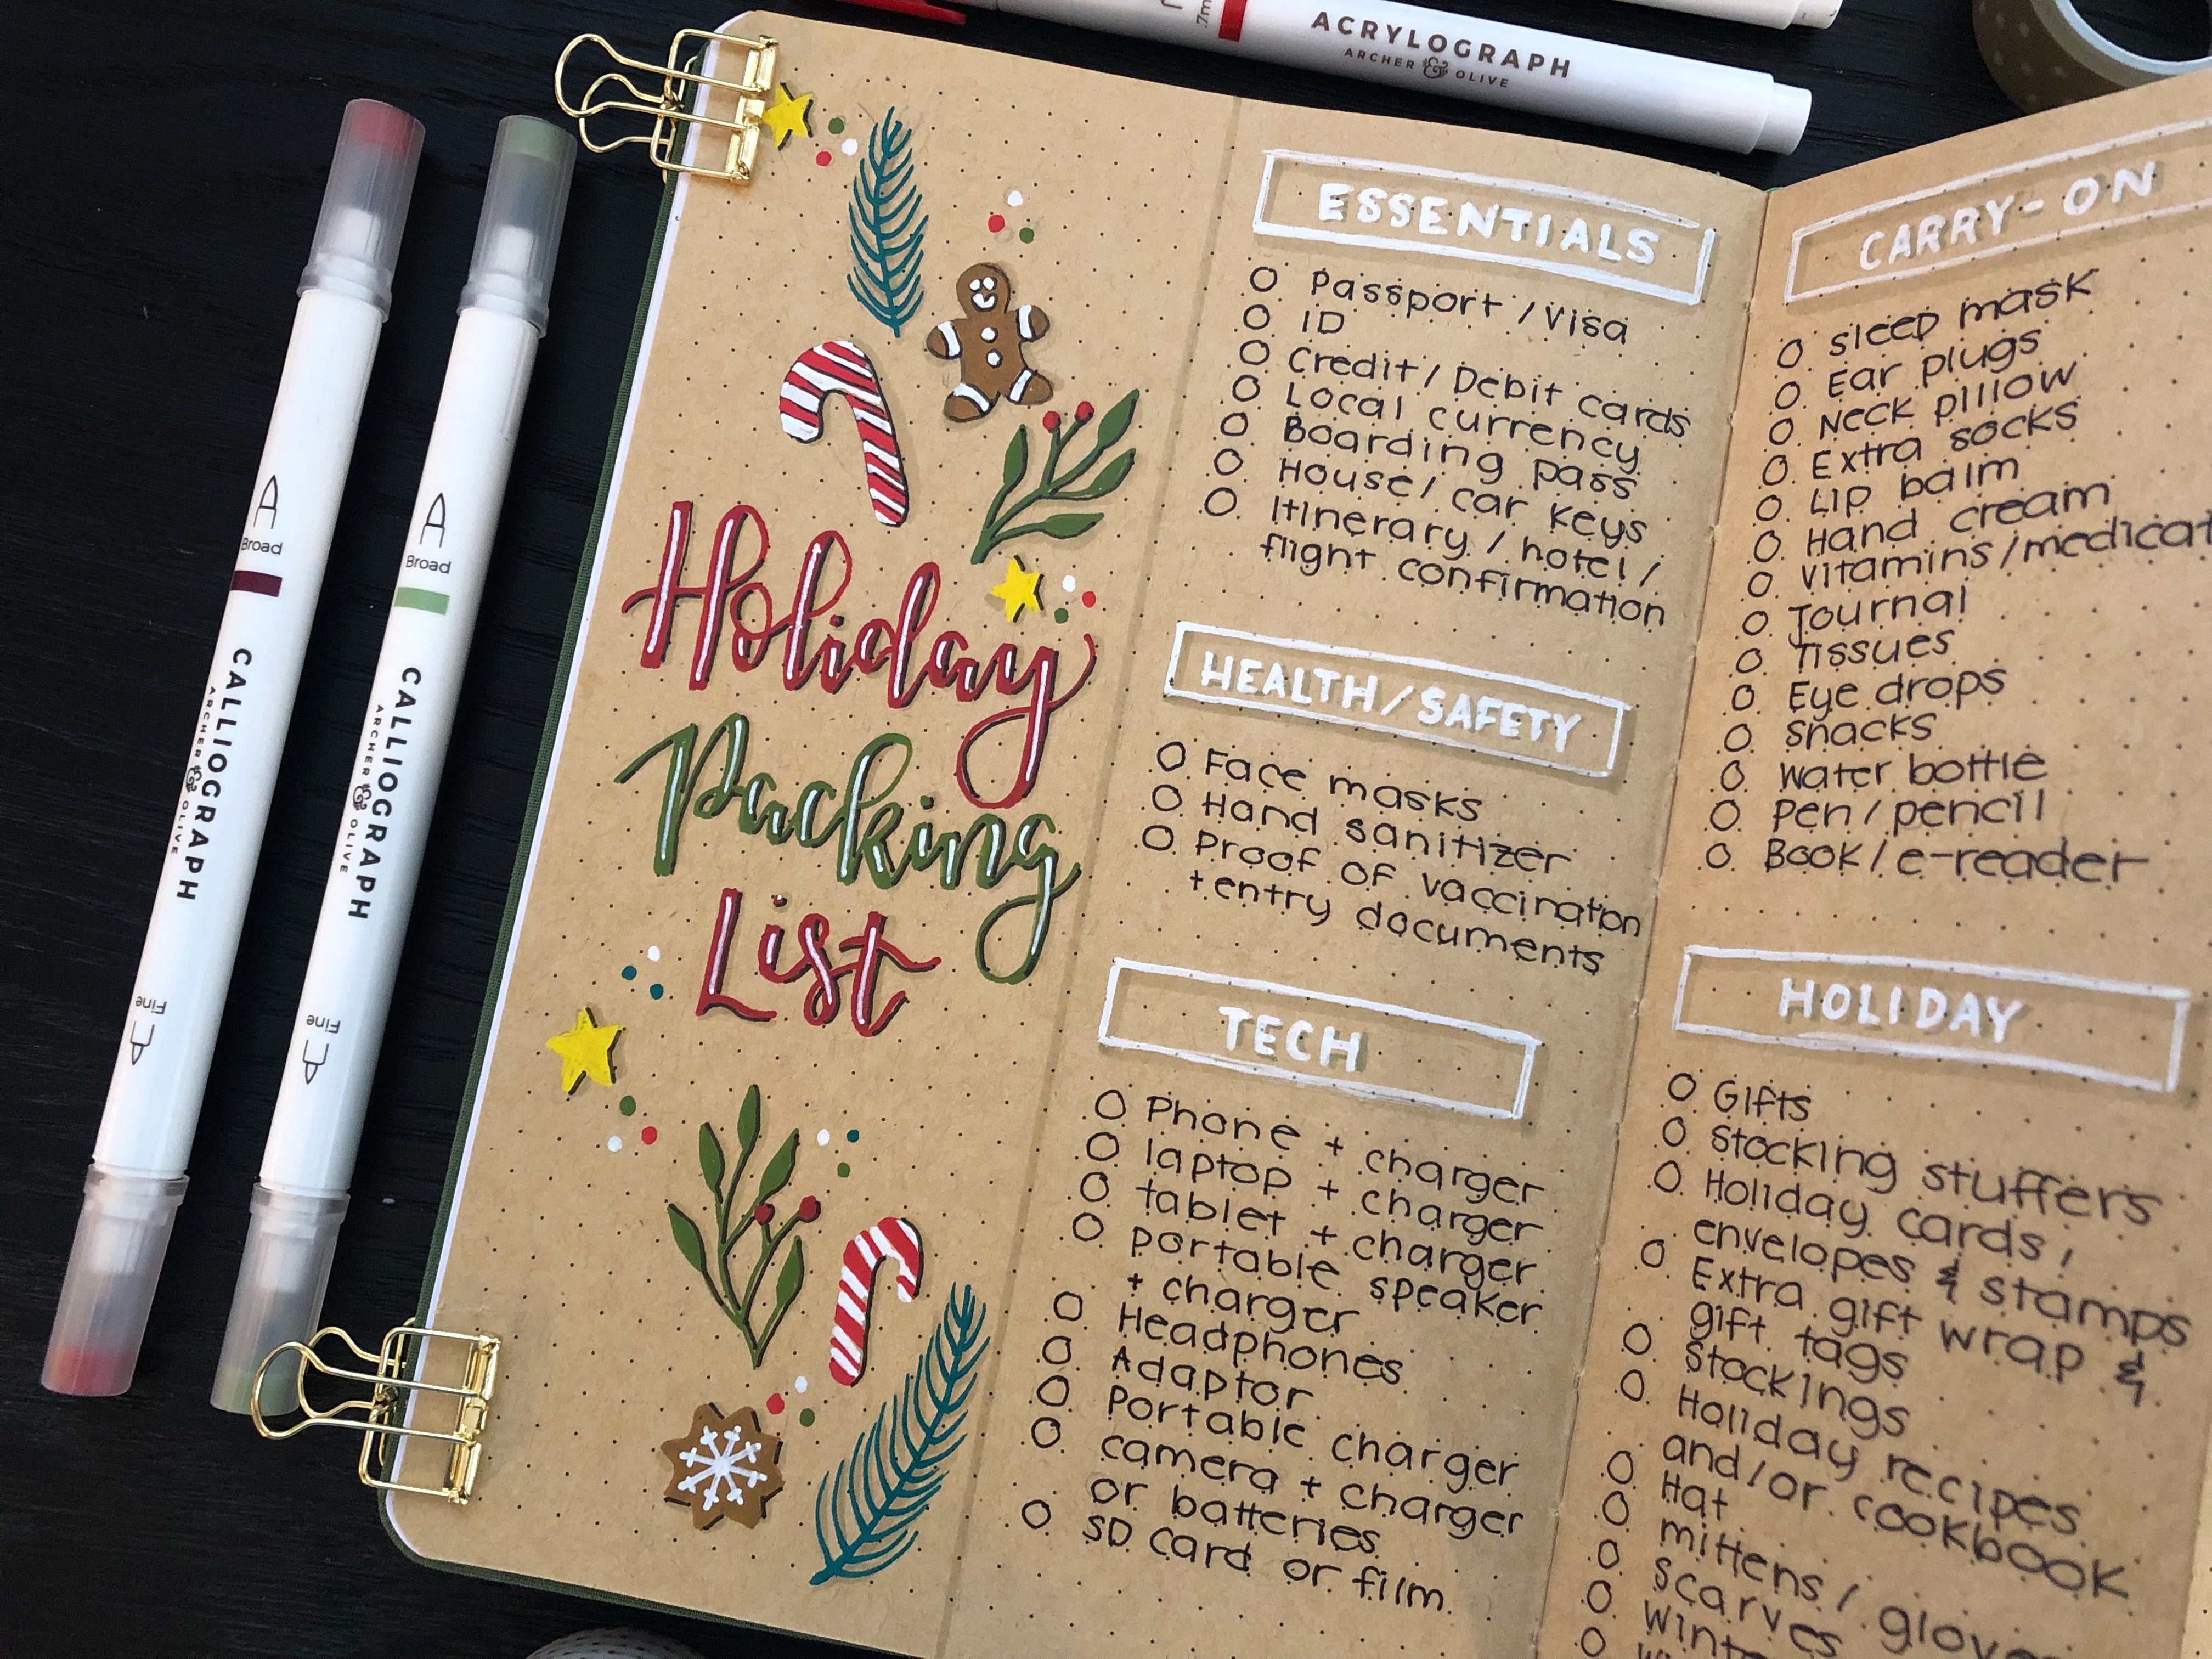 ACRYLOGRAPH
ARCHER & OLIVE
.7m
Broad
CALLIOGRAPH
ARCHER & OLIVE
Fine
Broad
CALLIOGRAPH
ARCHER & OLIVE
Fine
Holiday
Packing
List
ESSENTIALS
Passport / Visa
ID
Credit / Debit cards
Local currency
Boarding pass
House / car keys
Itinerary / hotel /
flight confirmation
HEALTH/SAFETY
Face masks
Hand sanitizer
Proof of vaccination
+ entry documents
TECH
Phone + charger
laptop + charger
tablet + charger
portable speaker
+ charger
Headphones
Adaptor
Portable charger
camera + charger
or batteries
SD card or film
CARRY-ON
sleep mask
Ear plugs
Neck pillow
Extra socks
Lip balm
Hand cream
vitamins/medicat
Journal
Tissues
Eye drops
snacks
water bottle
Pen / pencil
Book / e-reader
HOLIDAY
Gifts
Stocking stuffers
Holiday cards,
envelopes & stamps
Extra gift wrap &
gift tags
Stockings
Holiday recipes
and/or cookbook
Hat
mittens / glove
scarves
Winte